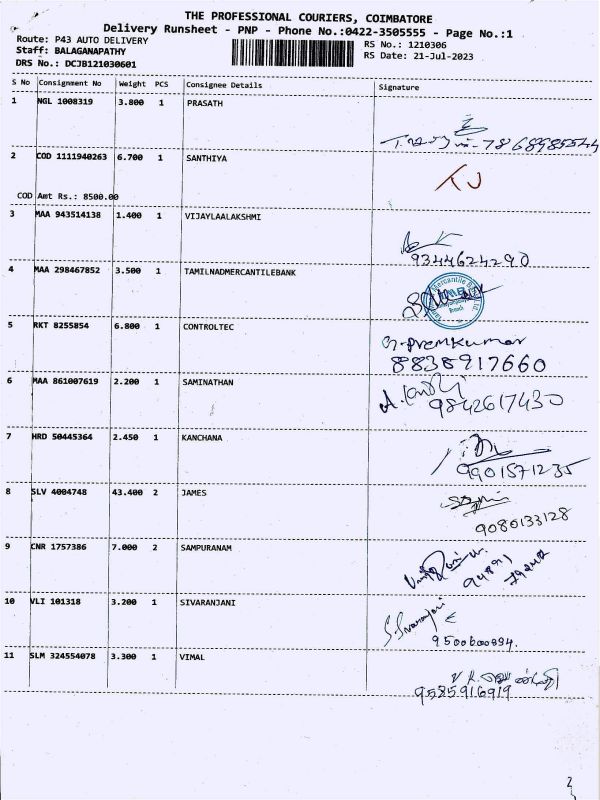 THE PROFESSIONAL COURIERS, COIMBATORE
Delivery Runsheet - PNP - Phone No.:0422-3505555 - Page No.:1
Route: P43 AUTO DELIVERY
Staff: BALAGANAPATHY
DRS No.: DCJB121030601
RS No.: 1210306
RS Date: 21-Jul-2023
S No Consignment No Weight PCS Consignee Details Signature
1 NGL 1008319 3.800 1 PRASATH
7868985544
2 COD 1111940263 6.700 1 SANTHIYA
COD Amt Rs.: 8500.00
3 MAA 943514138 1.400 1 VIJAYLAALAKSHMI
9344624290
4 MAA 298467852 3.500 1 TAMILNADMERCANTILEBANK
5 RKT 8255854 6.800 1 CONTROLTEC
Premkumar
8838917660
6 MAA 861007619 2.200 1 SAMINATHAN
9842617430
7 HRD 50445364 2.450 1 KANCHANA
9901571235
8 SLV 4004748 43.400 2 JAMES
9080133128
9 CNR 1757386 7.000 2 SAMPURANAM
10 VLI 101318 3.200 1 SIVARANJANI
9500600894.
11 SLM 324554078 3.300 1 VIMAL
9585916919